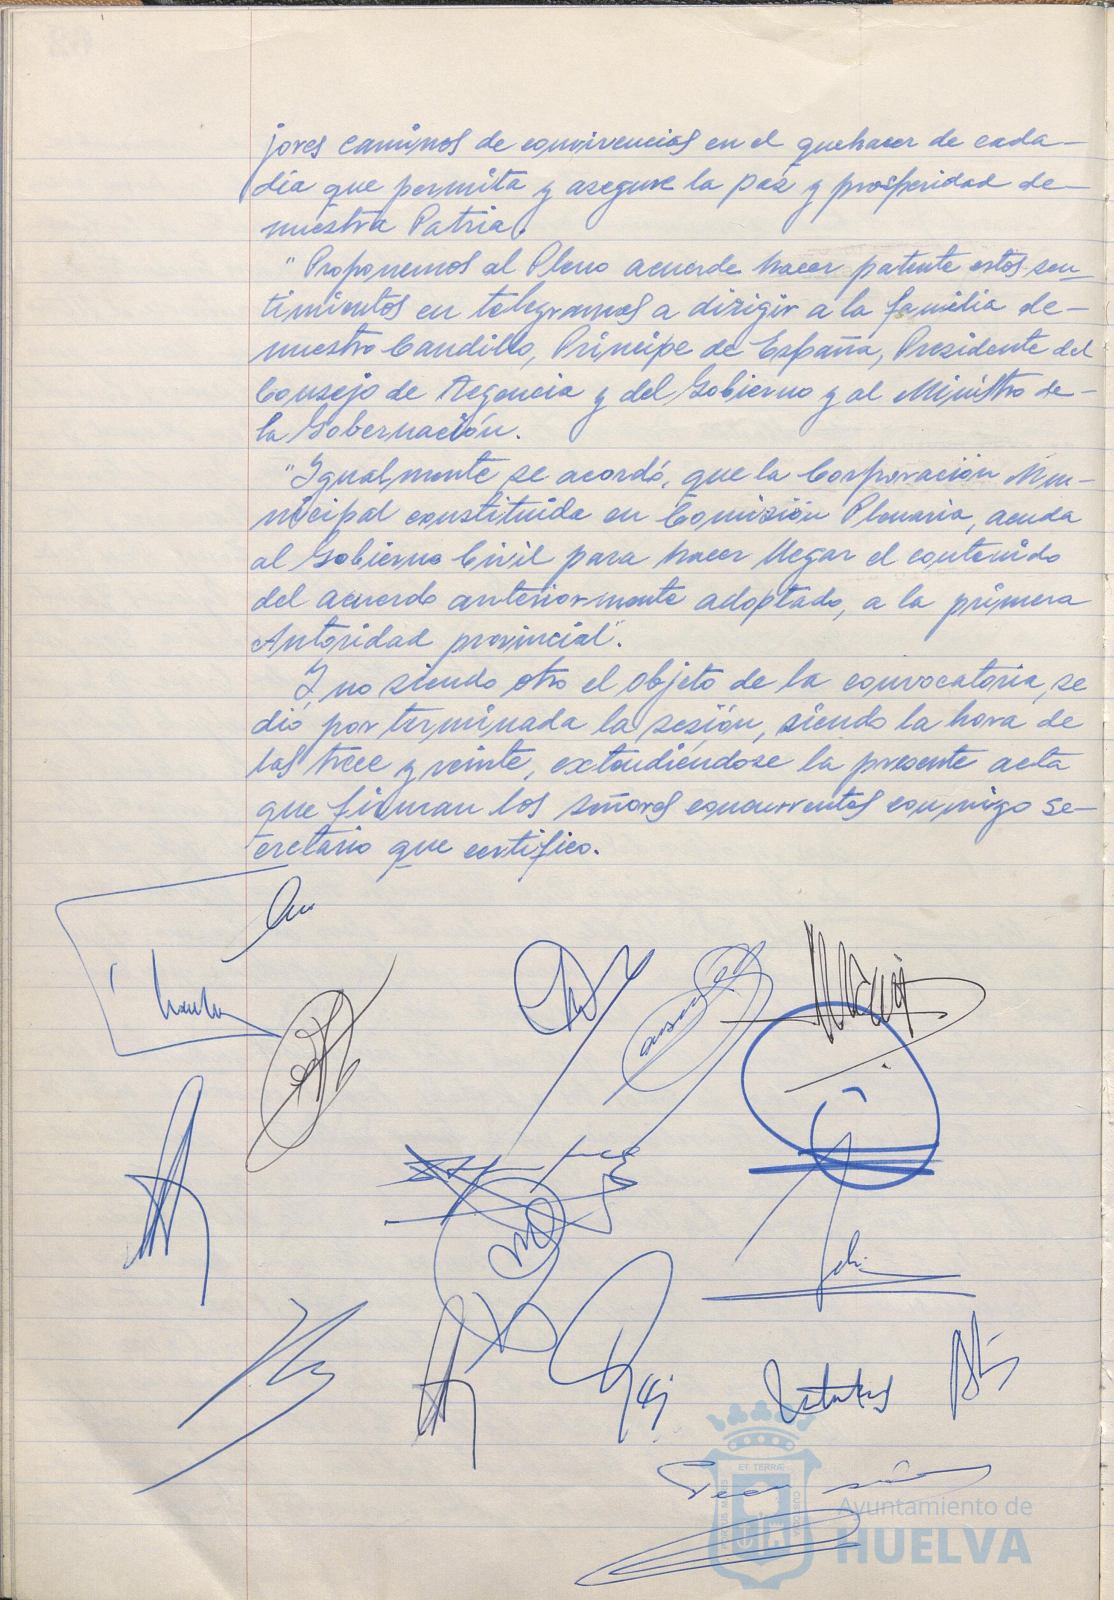 jores caminos de convivencias en el quehacer de cada
día que permita y asegure la paz y prosperidad de
nuestra Patria.
"Proponemos al Pleno acuerde hacer patente estos sen
timientos en telegramas a dirigir a la familia de
nuestro Caudillo, Príncipe de España, Presidente del
Consejo de Regencia y del Gobierno y al Ministro de
la Gobernación.
"Igualmente se acordó, que la Corporación Mu-
nicipal constituida en Comisión Plenaria, acuda
al Gobierno Civil para hacer llegar el contenido
del acuerdo anteriormente adoptado, a la primera
Autoridad provincial".
Y no siendo otro el objeto de la convocatoria, se
dió por terminada la sesión, siendo la hora de
las trece y veinte, extendiéndose la presente acta
que firman los señores concurrentes conmigo se-
cretario que certifico.
ET TERRÆ
PORTUS MARIS
CUSTODIA
Ayuntamiento de
HUELVA